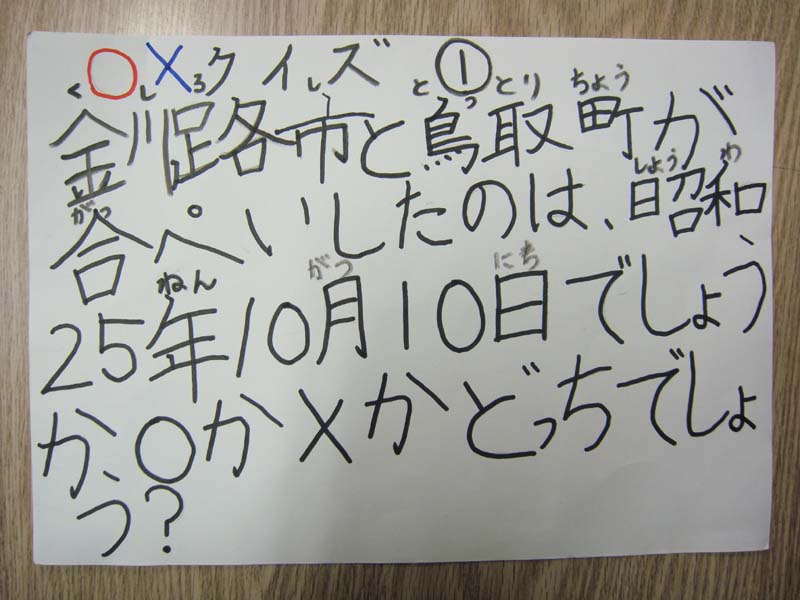 ○×クイズ ①
釧路市と鳥取町が
合ぺいしたのは、昭和、
25年10月10日でしょう
か、○か×かどっちでしょ
う?
くしろ し とっとり ちょう
がっ しょう わ
ねん がつ にち